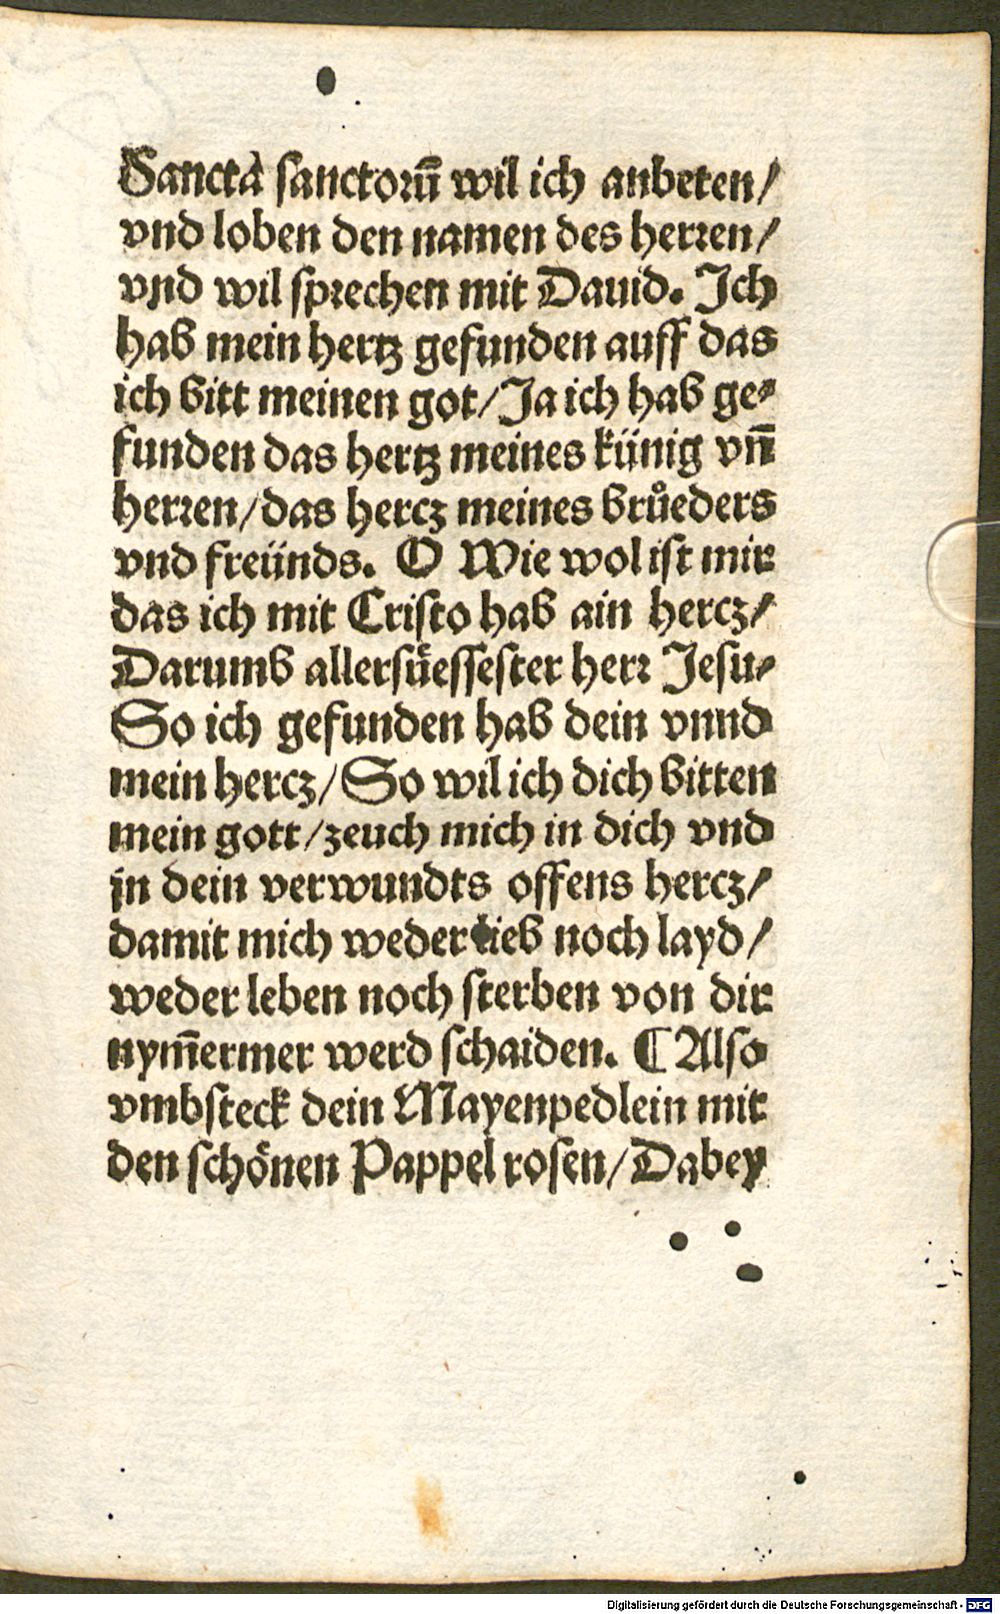 Sancta sanctorū wil ich anbeten/
vnd loben den namen des herren/
vnd wil sprechen mit Dauid. Ich
hab mein hertz gefunden auff das
ich bitt meinen got/Ja ich hab ge⸗
funden das hertz meines künig vn̄
herren/das hercz meines brůeders
vnd freünds. O Wie wol ist mir
das ich mit Cristo hab ain hercz/
Darumb allersüessester herr Jesu⸗
So ich gefunden hab dein vnnd
mein hercz/So wil ich dich bitten
mein gott/zeuch mich in dich vnd
jn dein verwundts offens hercz/
damit mich weder lieb noch layd/
weder leben noch sterben von dir
nym̄ermer werd schaiden. ¶ Also
vmbsteck dein Mayenpedlein mit
den schönen Pappel rosen/Dabey
Digitalisierung gefördert durch die Deutsche Forschungsgemeinschaft - DFG